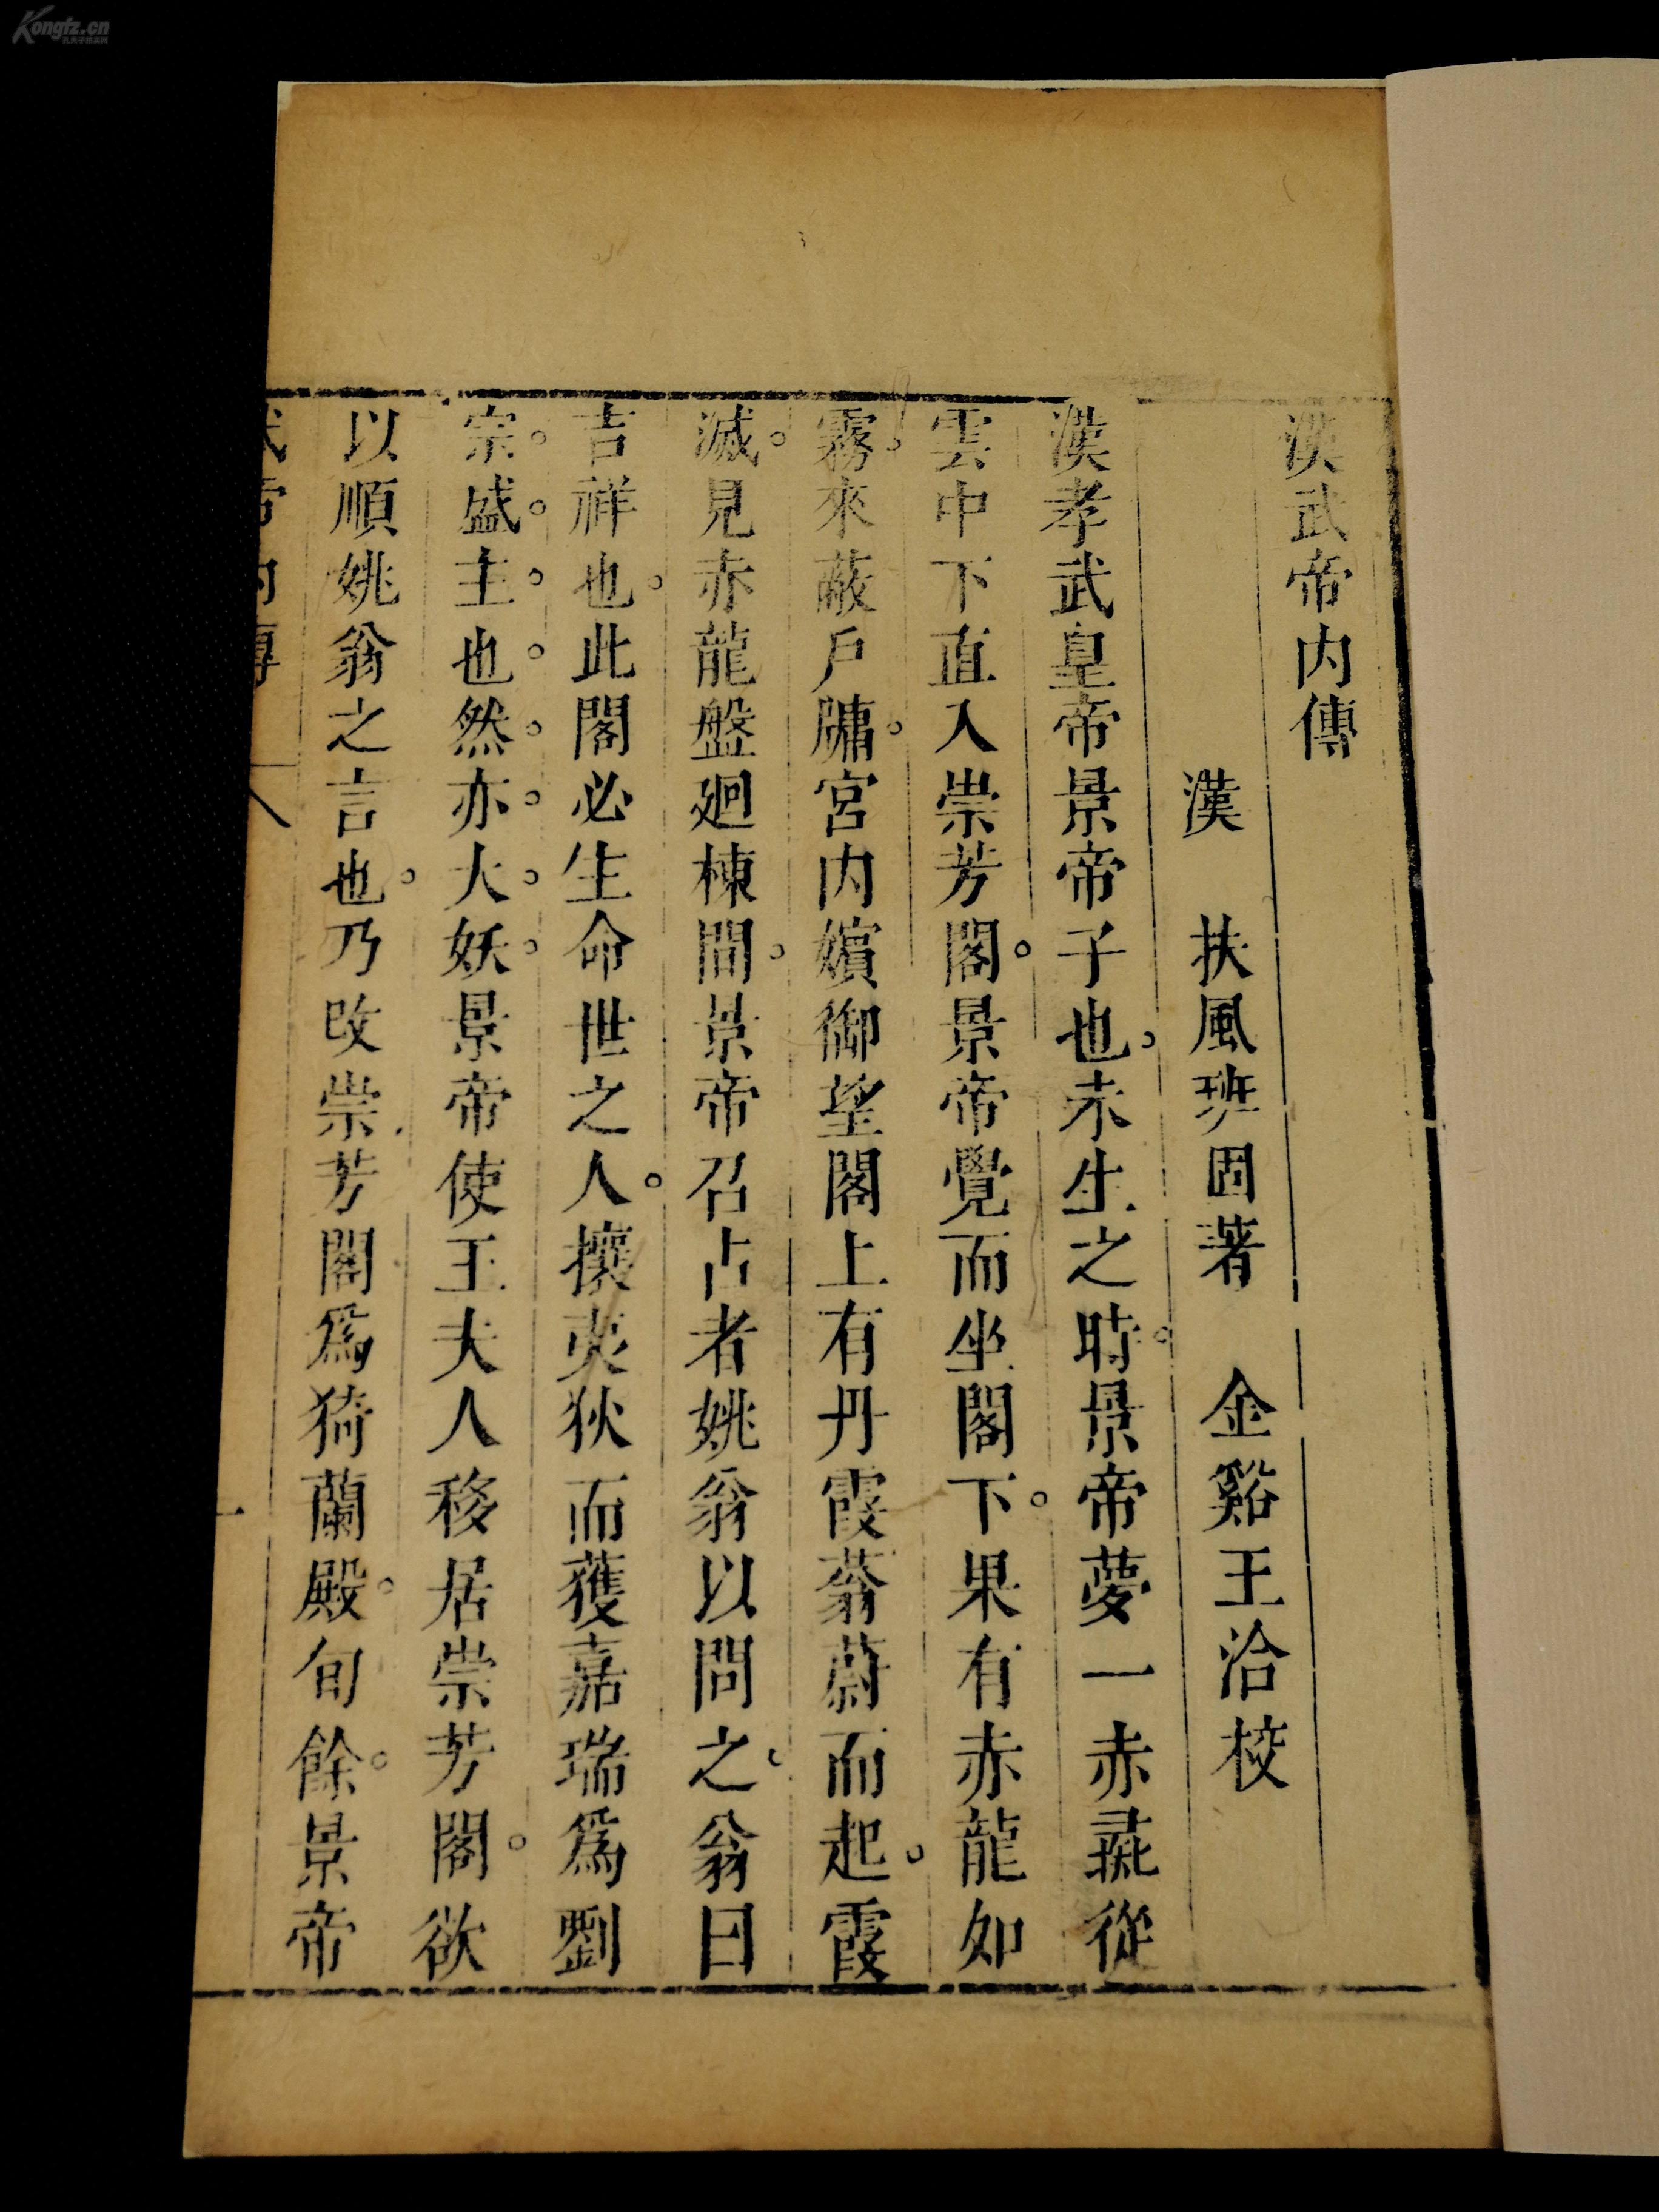 Kongfz.cn
漢武帝内傳
漢　扶風班固著　金谿王洽校
漢孝武皇帝景帝子也。未生之時。景帝夢一赤彘從
雲中下直入崇芳閣。景帝覺而坐閣下。果有赤龍如
霧。來蔽戶牖。宮内嬪御望閣上有丹霞蓊蔚而起。霞
滅。見赤龍盤廻棟間。景帝召占者姚翁以問之。翁曰
吉祥也。此閣必生命世之人。攘夷狄而獲嘉瑞爲劉
宗。盛。主。也。然。亦。大。妖。景帝使王夫人移居崇芳閣。欲
以順姚翁之言也。乃改崇芳閣爲猗蘭殿。旬餘。景帝
武帝内傳
一